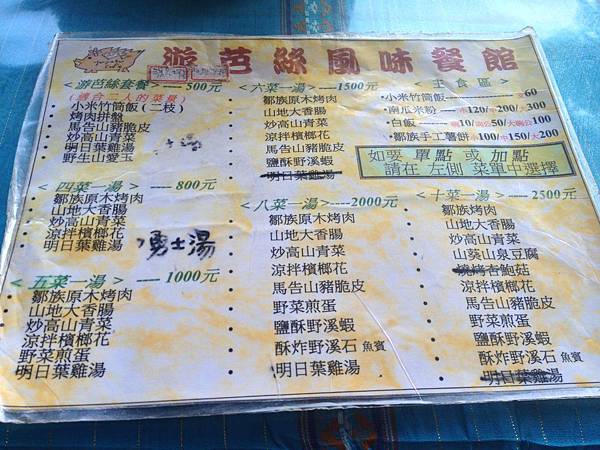 游芭絲風味餐館
< 游芭絲套餐 > ---- 500元
(適合二人的菜量)
• 小米竹筒飯 (二枝)
• 烤肉拼盤
• 馬告山豬脆皮
• 炒高山青菜
• 明日葉雞湯
• 野生山愛玉
< 四菜一湯 > ---- 800元
• 鄒族原木烤肉
• 山地大香腸
• 炒高山青菜
• 涼拌檳榔花
• 明日葉雞湯
勇士湯
< 五菜一湯 > ---- 1000元
• 鄒族原木烤肉
• 山地大香腸
• 炒高山青菜
• 涼拌檳榔花
• 野菜煎蛋
• 明日葉雞湯
< 六菜一湯 > ---- 1500元
• 鄒族原木烤肉
• 山地大香腸
• 炒高山青菜
• 涼拌檳榔花
• 馬告山豬脆皮
• 鹽酥野溪蝦
• 明日葉雞湯
< 八菜一湯 > ---- 2000元
• 鄒族原木烤肉
• 山地大香腸
• 炒高山青菜
• 涼拌檳榔花
• 馬告山豬脆皮
• 野菜煎蛋
• 鹽酥野溪蝦
• 酥炸野溪石魚賓
• 明日葉雞湯
主食區 >
• 小米竹筒飯 60
• 南瓜米粉 小120/中200/大300
• 白飯 碗10/50/100
• 鄒族手工薯餅 小100/中150/大200
如要 單點 或 加點
請在 左側 菜單中選擇
< 十菜一湯 > ---- 2500元
• 鄒族烤肉
• 山地大香腸
• 山葵山泉豆腐
• 燒烤杏鮑菇
• 涼拌檳榔花
• 馬告山豬脆皮
• 野菜煎蛋
• 鹽酥野溪蝦
• 酥炸野溪石魚賓
• 明日葉雞湯